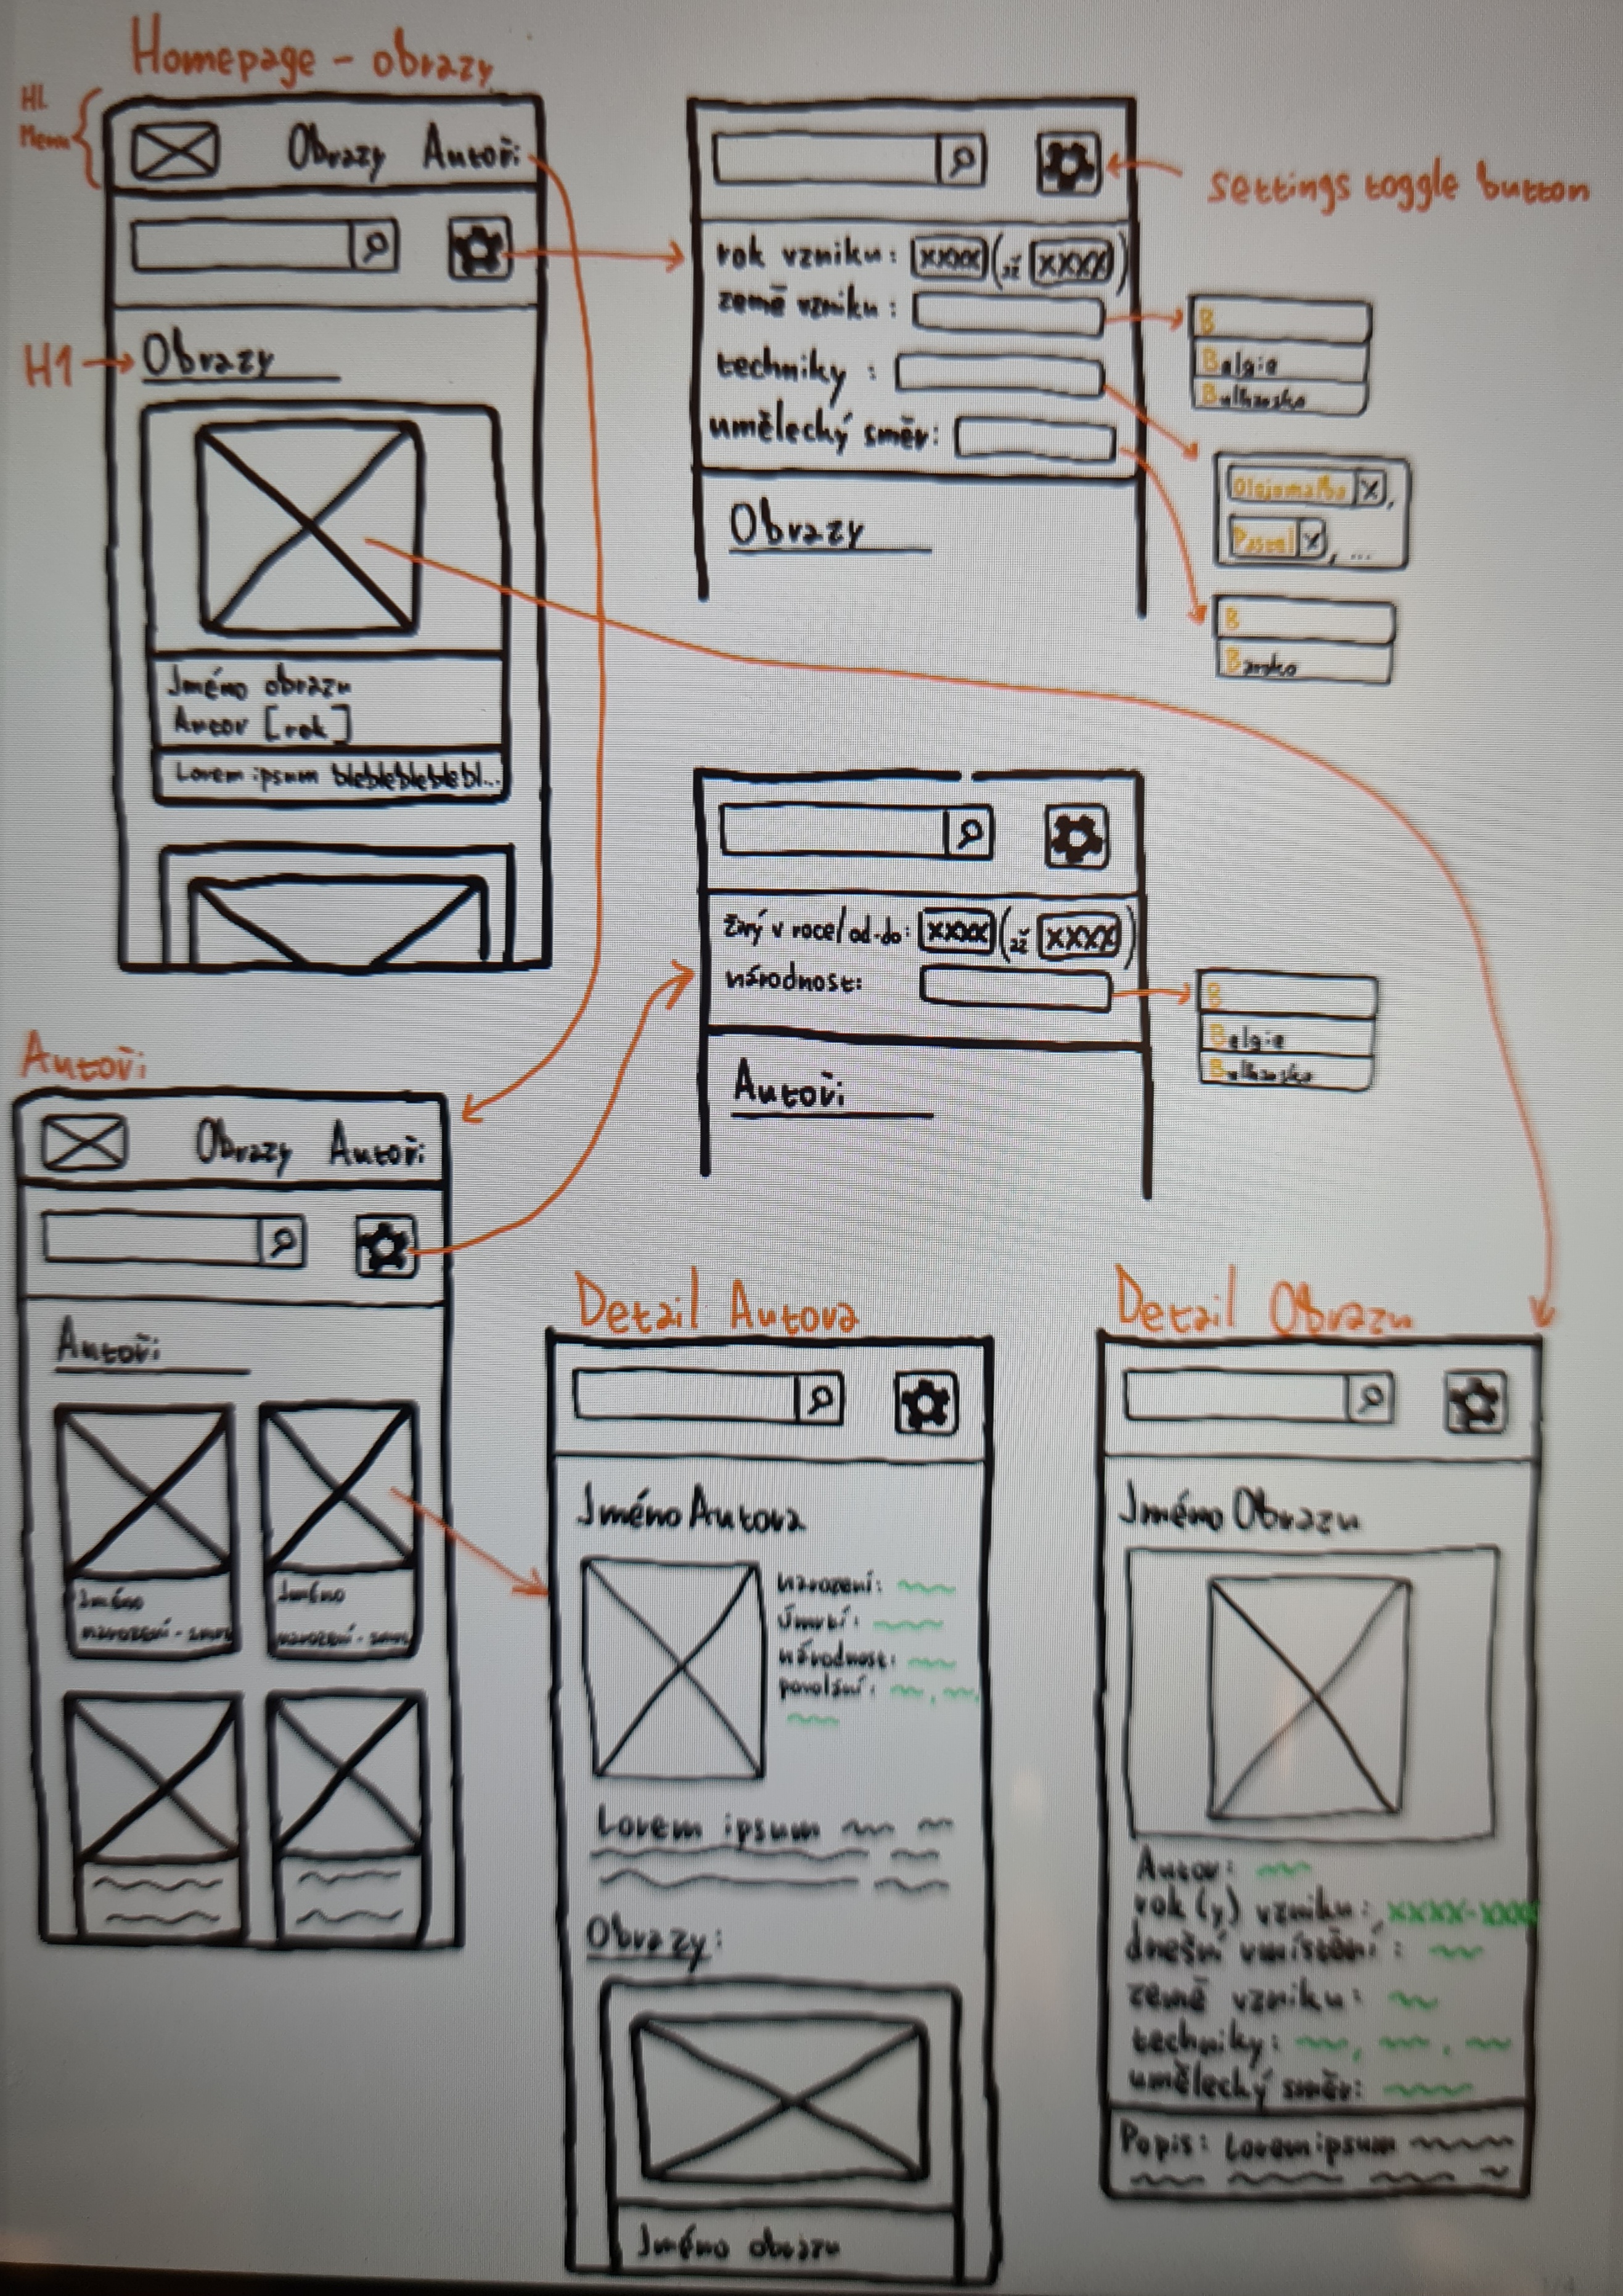 Homepage - obrazy
Hl.
Menu
Obrazy Autoři
H1
Obrazy
Jméno obrazu
Autor [rok]
Lorem ipsum blebleblebleblebl...
settings toggle button
rok vzniku: XXXX (až XXXX)
země vzniku:
techniky:
umělecký směr:
Obrazy
B
Belgie
Bulharsko
Olejomalba X,
Pastel X, ...
B
Baroko
živý v roce/od-do: XXXX (až XXXX)
národnost:
Autoři
B
Belgie
Bulharsko
Autoři
Obrazy Autoři
Autoři
Jméno
narození -
Jméno
narození -
Detail Autora
Jméno Autora
narození:
úmrtí:
národnost:
povolání:
Lorem ipsum
Obrazy:
Jméno obrazu
Detail Obrazu
Jméno Obrazu
Autor:
rok(y) vzniku: XXXX-XXXX
dnešní umístění:
země vzniku:
techniky:
umělecký směr:
Popis: Lorem ipsum